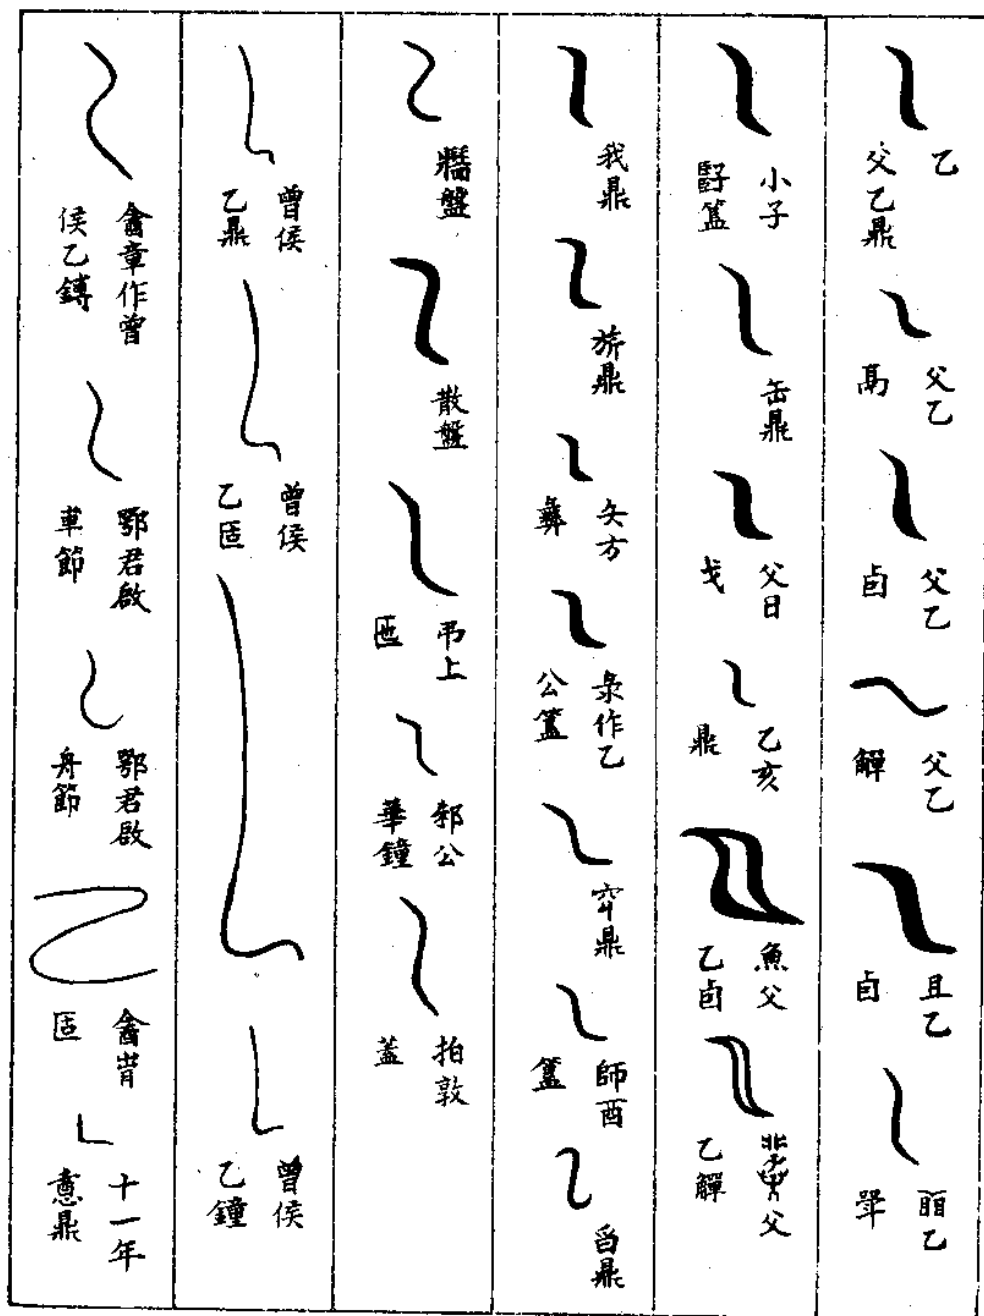 乙
父乙鼎
父乙
鬲
父乙
卣
父乙
觶
且乙
卣
乙
斝
小子
簋
缶鼎
父日
戈
乙亥
鼎
魚父
乙卣
父
乙觶
我鼎
旂鼎
夨方
彝
彔作乙
公簋
鼎
師酉
簋
舀鼎
牆盤
散盤
弔上
匜
邾公
華鐘
拍敦
蓋
曾侯
乙鼎
曾侯
乙
曾侯
乙鐘
酓章作曾
侯乙鎛
鄂君啟
車節
鄂君啟
舟節
酓肯
十一年
鼎